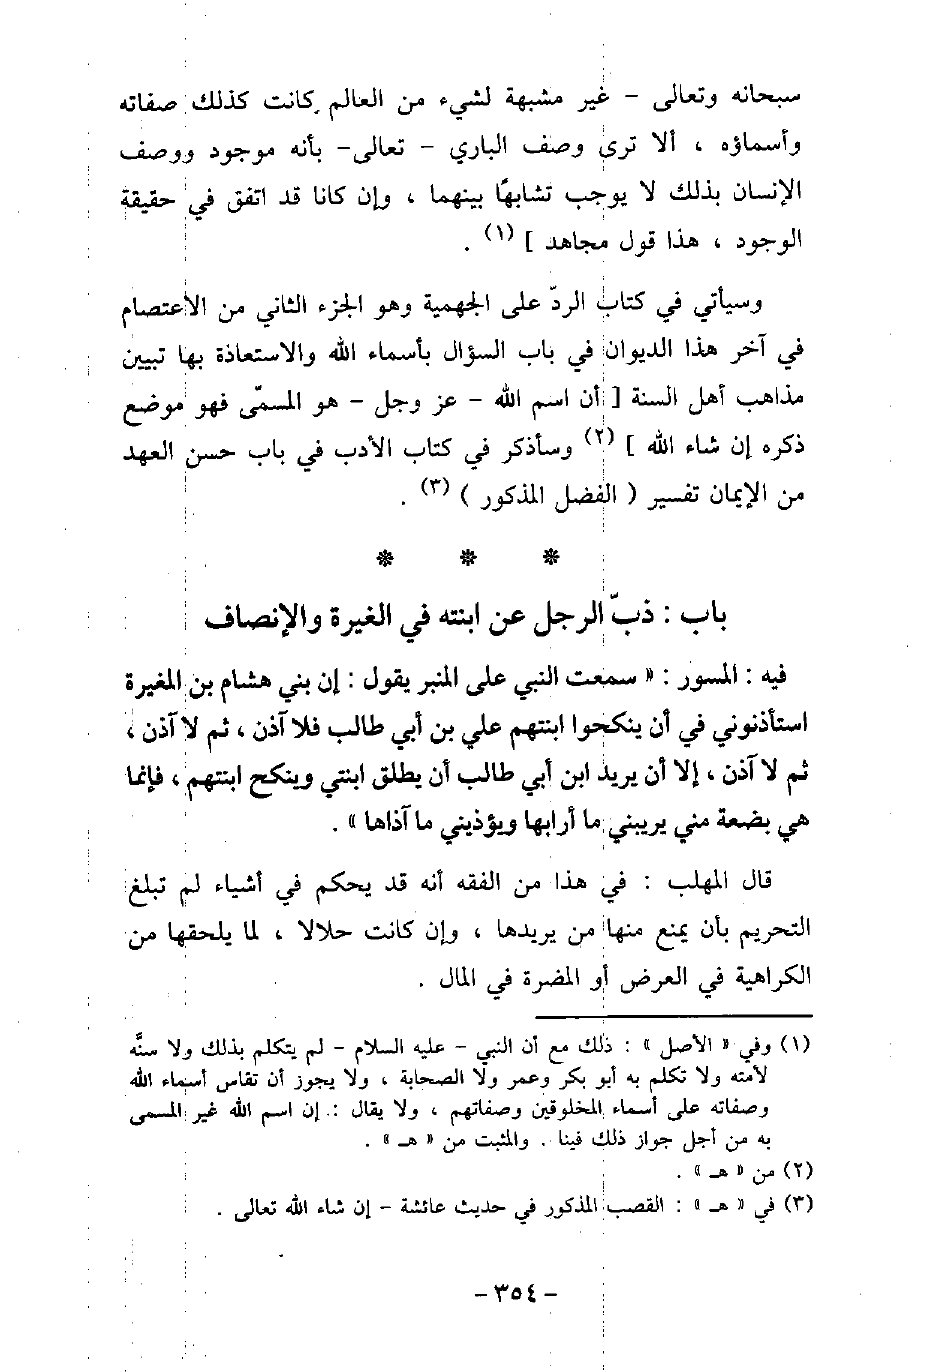 سبحانه وتعالى - غير مشبهة لشيء من العالم كانت كذلك صفاته
وأسماؤه ، ألا ترى وصف الباري - تعالى- بأنه موجود ووصف
الإنسان بذلك لا يوجب تشابهًا بينهما ، وإن كانا قد اتفق في حقيقة
الوجود ، هذا قول مجاهد ] (١) .
وسيأتي في كتاب الردّ على الجهمية وهو الجزء الثاني من الاعتصام
في آخر هذا الديوان في باب السؤال بأسماء الله والاستعاذة بها تبيين
مذاهب أهل السنة [ أن اسم الله - عز وجل - هو المسمّى فهو موضع
ذكره إن شاء الله ] (٢) وسأذكر في كتاب الأدب في باب حسن العهد
من الإيمان تفسير ( الفضل المذكور ) (٣) .
* * *
باب : ذبّ الرجل عن ابنته في الغيرة والإنصاف
فيه : المسور : « سمعت النبي على المنبر يقول : إن بني هشام بن المغيرة
استأذنوني في أن ينكحوا ابنتهم علي بن أبي طالب فلا آذن ، ثم لا آذن ،
ثم لا آذن ، إلا أن يريد ابن أبي طالب أن يطلق ابنتي وينكح ابنتهم ، فإنما
هي بضعة مني يريبني ما أرابها ويؤذيني ما آذاها » .
قال المهلب : في هذا من الفقه أنه قد يحكم في أشياء لم تبلغ
التحريم بأن يمنع منها من يريدها ، وإن كانت حلالا ، لما يلحقها من
الكراهية في العرض أو المضرة في المال .
(١) وفي « الأصل » : ذلك مع أن النبي - عليه السلام - لم يتكلم بذلك ولا سنَّه
لأمته ولا تكلم به أبو بكر وعمر ولا الصحابة ، ولا يجوز أن تقاس أسماء الله
وصفاته على أسماء المخلوقين وصفاتهم ، ولا يقال : إن اسم الله غير المسمى
به من أجل جواز ذلك فينا . والمثبت من « هـ » .
(٢) من « هـ » .
(٣) في « هـ » : القصب المذكور في حديث عائشة - إن شاء الله تعالى .
- ٣٥٤ -